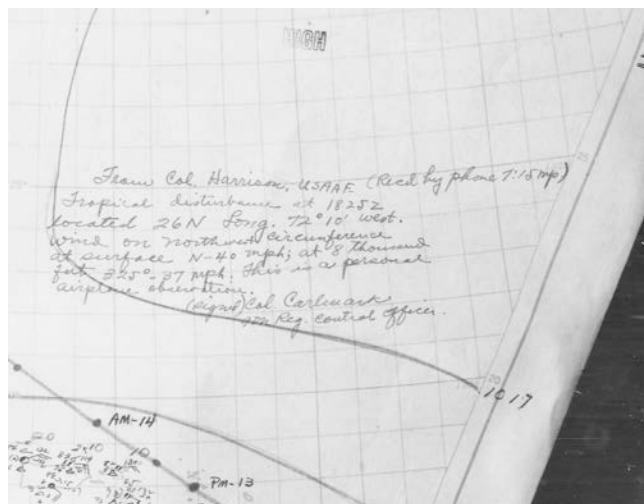 HIGH
25
From Col. Harrison, USAAF (Recd by phone 7:15 mp)
Tropical disturbance at 1825Z
located 26N Long. 72°10' West.
wind on northwest circumference
at surface N-40 mph; at 8 thousand
feet 325°-37 mph. This is a personal
airplane observation.
(signed) Col Carlmark
Reg. Control Officer.
20
1017
AM-14
10
PM-13